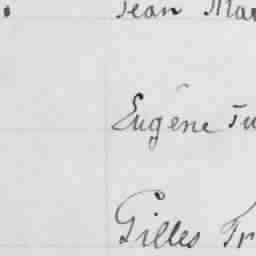 Jean Ma
Eugène Tu
Gilles Fr